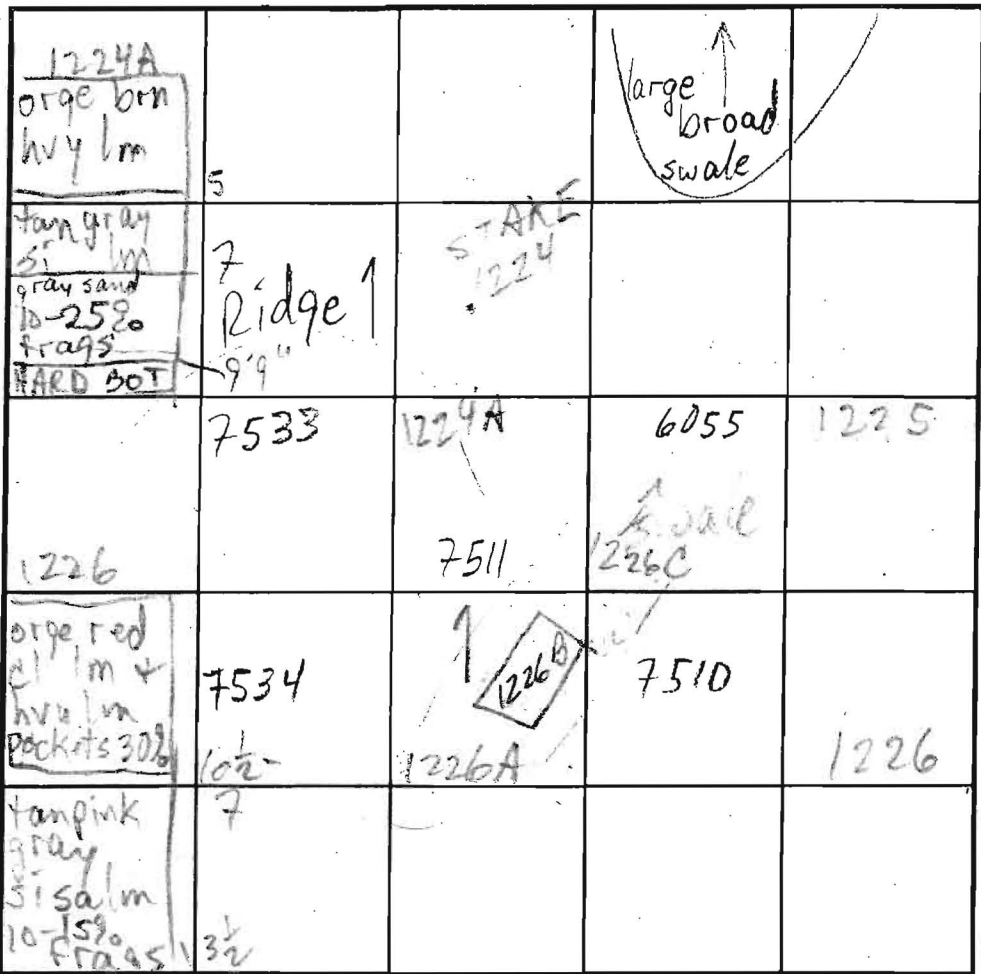 1224A
orge brn
hvy lm
5
large
broad
swale
tan gray
si lm
gray sand
10-25%
frags
HARD BOT
7
Ridge 1
9'9"
STAKE
1224
7533
1224A
6055
1225
1226
7511
swale
1226C
orge red
cl lm +
hvy lm
pockets 30%
7534
10½-
1
1226B
1226A
7510
1226
tan pink
gray
si sa lm
10-15%
frags
7
3½